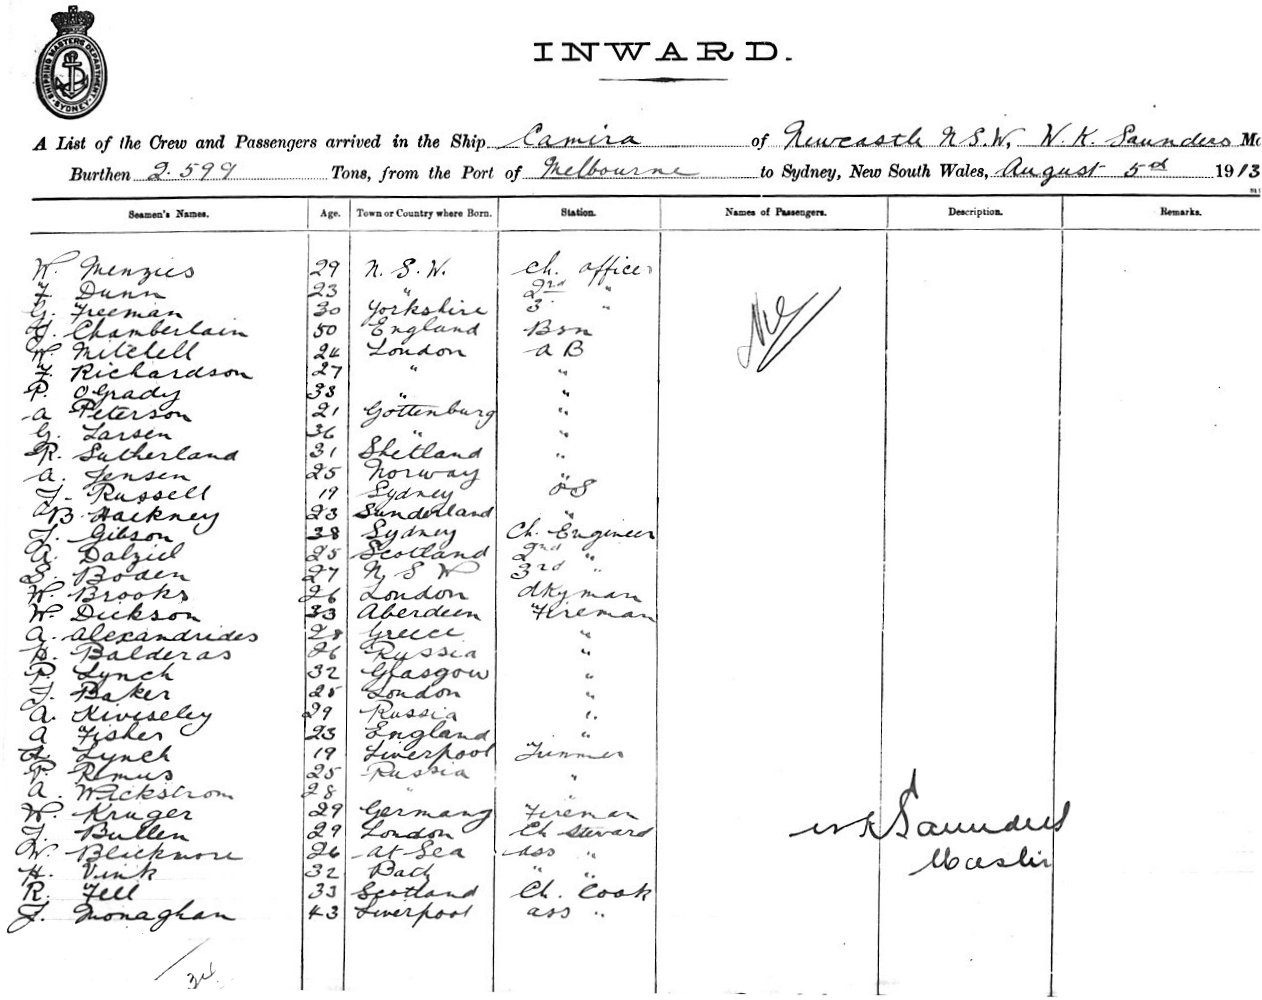 SHIPPING MASTERS DEPARTMENT SYDNEY
INWARD.
A List of the Crew and Passengers arrived in the Ship Camira of Newcastle N.S.W, W. K. Saunders
Burthen 2.599 Tons, from the Port of Melbourne to Sydney, New South Wales, August 5th 1913
Seamen's Names. Age. Town or Country where Born. Station. Names of Passengers. Description. Remarks.
W. Menzies 29 N. S. W. Ch. officer
F. Dunn 23 " 2nd "
G. Freeman 30 Yorkshire 3 "
Chamberlain 50 England Bsn
W. Mitchell 24 London A B
F. Richardson 27 " "
P. O'Grady 38 " "
A Peterson 21 Gottenburg "
G. Larsen 36 " "
R. Sutherland 31 Shetland "
A. Jensen 25 Norway "
Russell 19 Sydney O S
B. Hackney 23 Sunderland "
Gibson 38 Sydney Ch. Engineer
A. Dalziel 25 Scotland 2nd "
S. Boden 27 N S W 3rd "
W. Brooks 26 London dkyman
W. Dickson 33 Aberdeen Fireman
A. Alexandrides 28 Greece "
Balderas 26 Russia "
P. Lynch 32 Glasgow "
Baker 25 London "
A. Kiviseley 29 Russia "
A Fisher 23 England "
Lynch 19 Liverpool Trimmer
P. Remus 25 Russia "
A. Wickstrom 28 " "
W. Kruger 29 Germany Fireman
Bullen 29 London Ch Steward
W. Blackmore 26 at Sea ass "
H. Vink 32 " "
R. Fell 33 Scotland Ch. Cook
J. Monaghan 43 Liverpool ass "
W K Saunders
Master
34